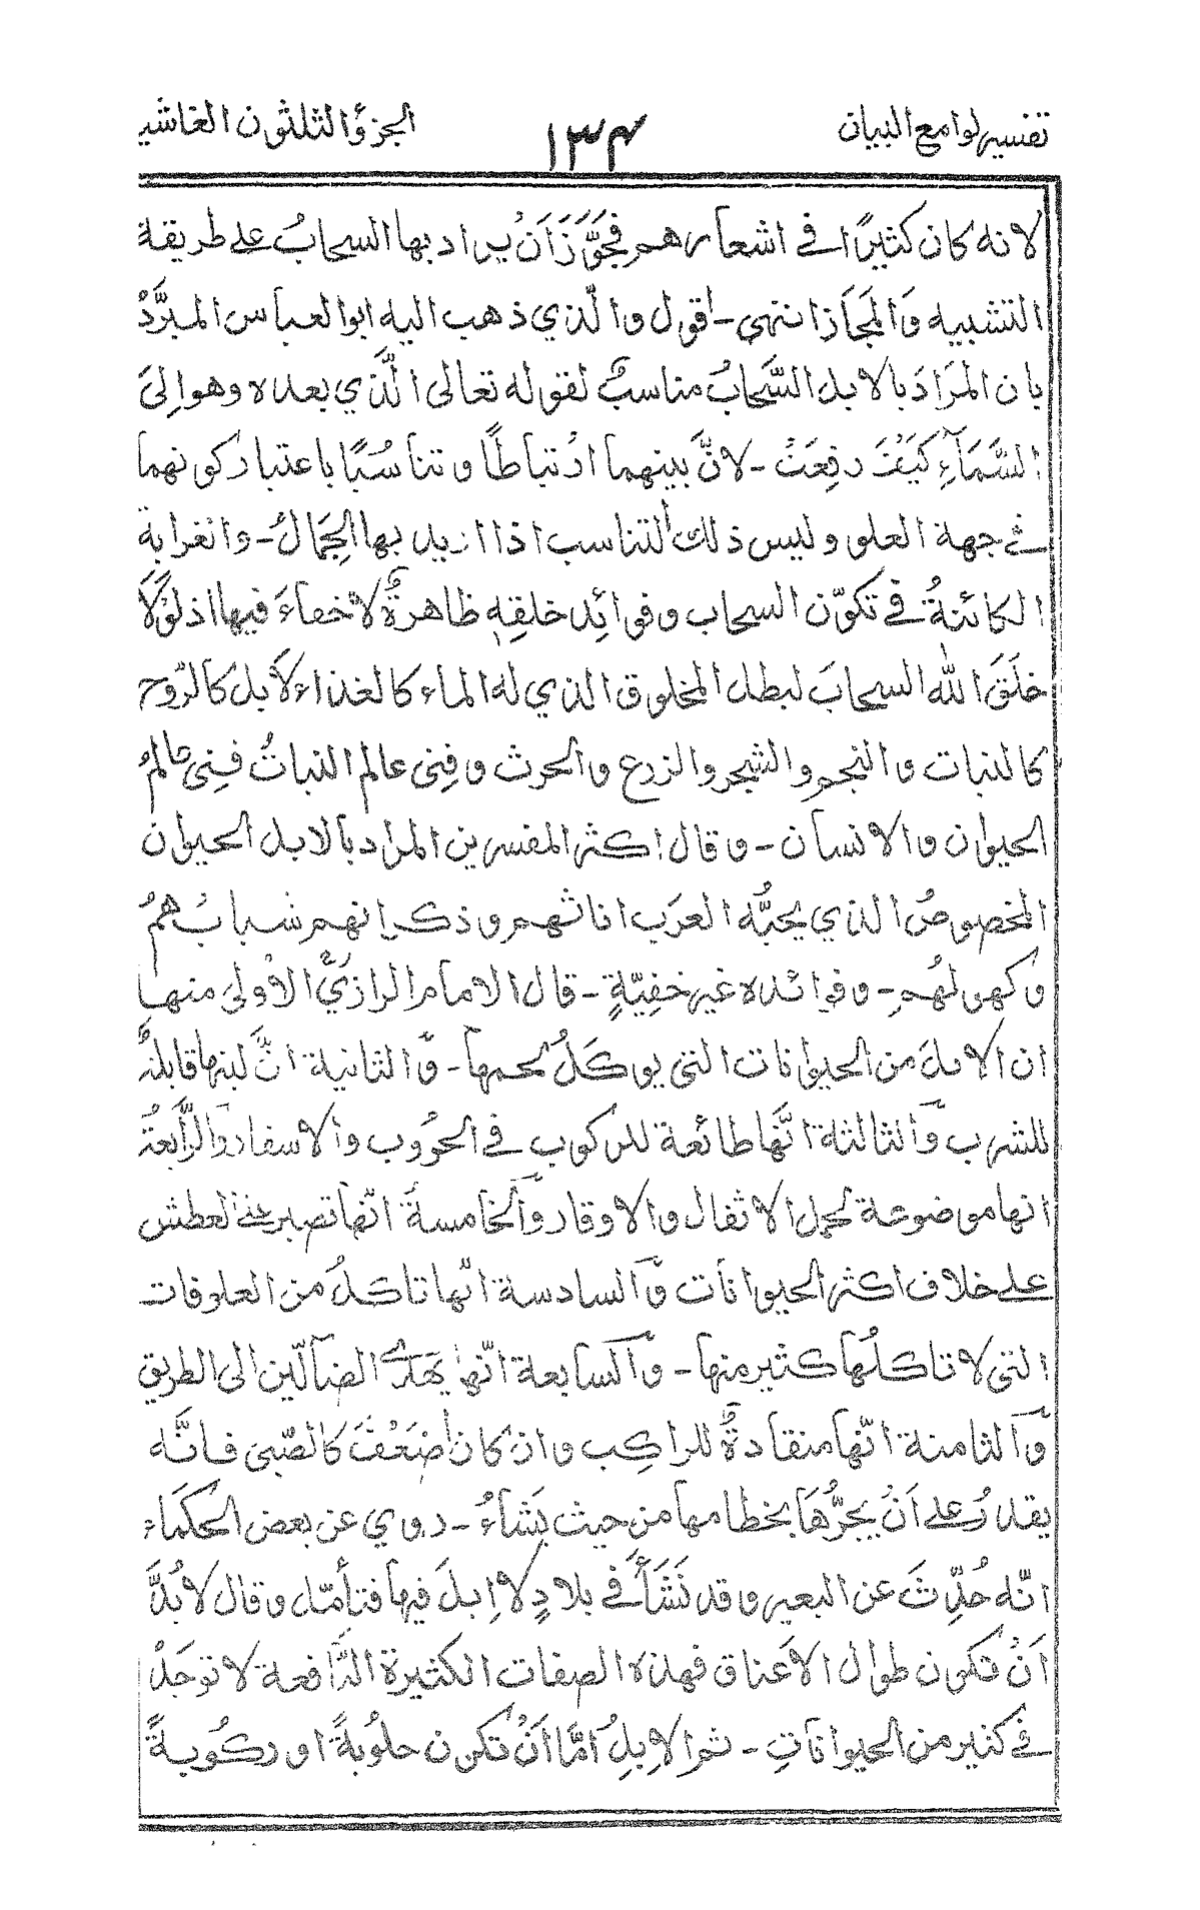 تفسير لوامع البيان ١٣٤ الجزؤ الثلثون الغاشي
لانه كان كثيرًا في اشعارهم فجَوَّزَ اَنْ يراد بها السحابُ على طريقة
التشبيه وَالمَجَاز انتهى ـ اقول والّذي ذهب اليه ابوالعباس المبرَّدْ
بان المرَادَ بالابل السَّحَابُ مناسبٌ لقوله تعالى الَّذي بعده وهو اِلىَ
السَّمَآءِ كَيْفَ رفِعَتْ ـ لانَّ بينهما ارْتباطًا وتناسُبًا باعتبار كونهما
في جهة العلو وليس ذلك التناسب اذا اريد بها الجِمَالُ ـ والغرابة
الكائنةُ في تكوّن السحاب وفوائِد خلقِهٖ ظاهرةٌ لاخفاءَ فيها اذ لوْلَا
خلَقَ الله السحابَ لبطل المخلوق الذي له الماء كالغذاء لَا بلَ كالرّوح
كالنبات والنجم والشجر والزرع والحرث وفنِى عالم النباتُ فنِى عالمُ
الحيوان والانسان ـ وقال اكثر المفسرين المراد بالابل الحيوان
المخصوصُ الذي يحبُّه العرَب اناثهم وذكرانهم شبابُهمُ
وكهولهُم ـ وفوائده غير خفِيّةٍ ـ قال الامام الرازيُّ الاوْلىٰ منها
ان الابلَ من الحيوانات التي يوكَلُ لحمها ـ وّالثانية انَّ لبنها قابلةٌ
للشرب وّالثالثة انَّها طائعة للركوب في الحرُوب والاسفار وّالرَّابعةُ
انها موضوعة لحمل الاثقال والاوقار وّالخامسةُ انّها تصبر عن العطش
على خلاف اكثر الحيوانَات وّالسادسة انّها تاكلُ من العلوفات
التي لا تاكلُها كثير منها ـ وّالسابعة انّها يهدى الضالّين الى الطريق
وّالثامنة انّها منقادةٌ للراكِب وان كان اضعَفَ كالصّبي فانَّه
يقدرُ على اَنْ يجرُّهَا بخطامها من حيث يَشاءُ ـ روي عن بعض الحُكَماء
انّه حُدِّثَ عن البعير وقد نَشَأَ في بلادٍ لا اِبلَ فيها فتأمّل وقال لابُدَّ
اَنْ تكون طوال الاَعناق فهذه الصفات الكثيرة النَّافعة لا توجَدْ
في كثير من الحيوانَاتِ ـ ثم الاِبلِ اَمَّا اَنْ تكون حلُوبةً او ركُوبةً